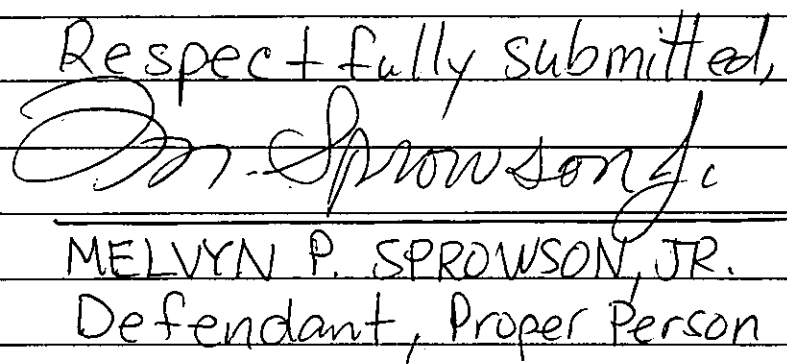 Respectfully submitted,
M. Sprowson Jr.
MELVYN P. SPROWSON, JR.
Defendant, Proper Person